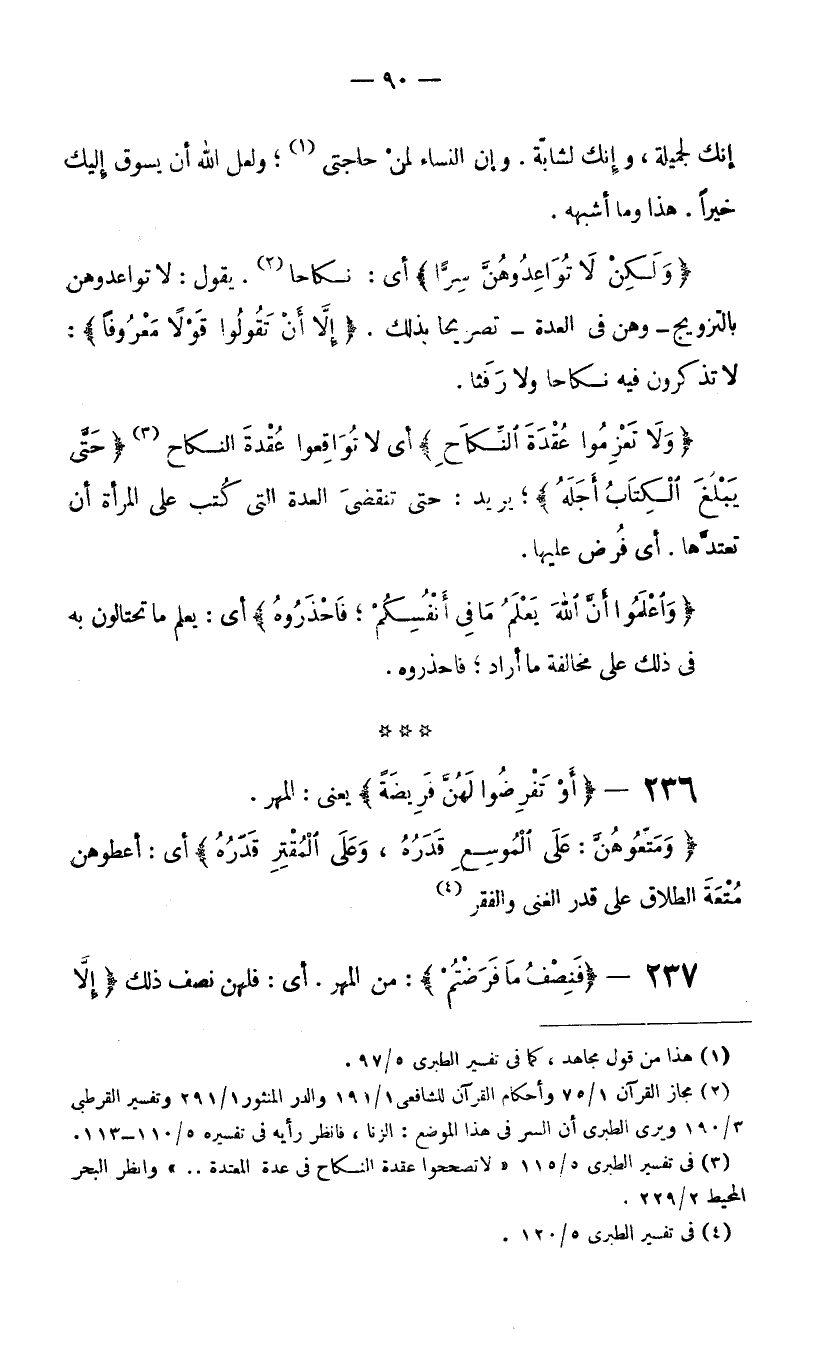 — ٩٠ —
إنك لجميلة ، و إنك لشابّة . و إن النساء لمنْ حاجتى (١) ؛ ولعل الله أن يسوق إليك
خيراً . هذا وما أشبهه .
﴿ وَلَـٰكِنْ لَا تُوَاعِدُوهُنَّ سِرًّا ﴾ أى : نـكاحا (٢) . يقول : لا تواعدوهن
بالتزويج ــ وهن فى العدة ــ تصريحا بذلك . ﴿ إِلَّا أَنْ تَقُولُوا قَوْلًا مَعْرُوفًا ﴾ :
لا تذكرون فيه نـكاحا ولا رَفَثا .
﴿ وَلَا تَعْزِمُوا عُقْدَةَ ٱلنِّكَاحِ ﴾ أى لا تُوَاقِعوا عُقْدةَ النـكاح (٣) ﴿ حَتَّى
يَبْلُغَ ٱلْـكِتَابُ أَجَلَهُ ﴾ ؛ يريد : حتى تنقضىَ العدة التى كُتب على المرأة أن
تعتدَّها . أى فُرض عليها .
﴿ وَٱعْلَمُوا أَنَّ ٱللهَ يَعْلَمُ مَا فِى أَنْفُسِـكُمْ ؛ فَاحْذَرُوهُ ﴾ أى : يعلم ما تحتالون به
فى ذلك على مخالفة ما أراد ؛ فاحذروه .
☆ ☆ ☆
٢٣٦ — ﴿ أَوْ تَفْرِضُوا لَهُنَّ فَرِيضَةً ﴾ يعنى : المهر .
﴿ وَمَتِّعُوهُنَّ : عَلَى ٱلْمُوسِعِ قَدَرُهُ ، وَعَلَى ٱلْمُقْتِرِ قَدَرُهُ ﴾ أى : أعطوهن
مُتْعَةَ الطلاق على قدر الغنى والفقر (٤)
٢٣٧ — ﴿فَنِصْفُ مَا فَرَضْتُمْ ﴾ : من المهر . أى : فلهن نصف ذلك ﴿ إِلَّا
(١) هذا من قول مجاهد ، كما فى تفسير الطبرى ٩٧/٥ .
(٢) مجاز القرآن ٧٥/١ وأحكام القرآن للشافعى ١٩١/١ والدر المنثور ٢٩١/١ وتفسير القرطبى
١٩٠/٣ ويرى الطبرى أن السر فى هذا الموضع : الزنا ، فانظر رأيه فى تفسيره ١١٠/٥—١١٣.
(٣) فى تفسير الطبرى ١١٥/٥ « لاتصححوا عقدة النـكاح فى عدة المعتدة .. » وانظر البحر
المحيط ٢٢٩/٢ .
(٤) فى تفسير الطبرى ١٢٠/٥ .